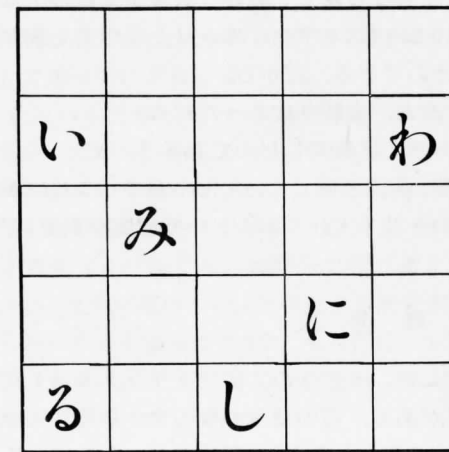 い わ
み
に
る し